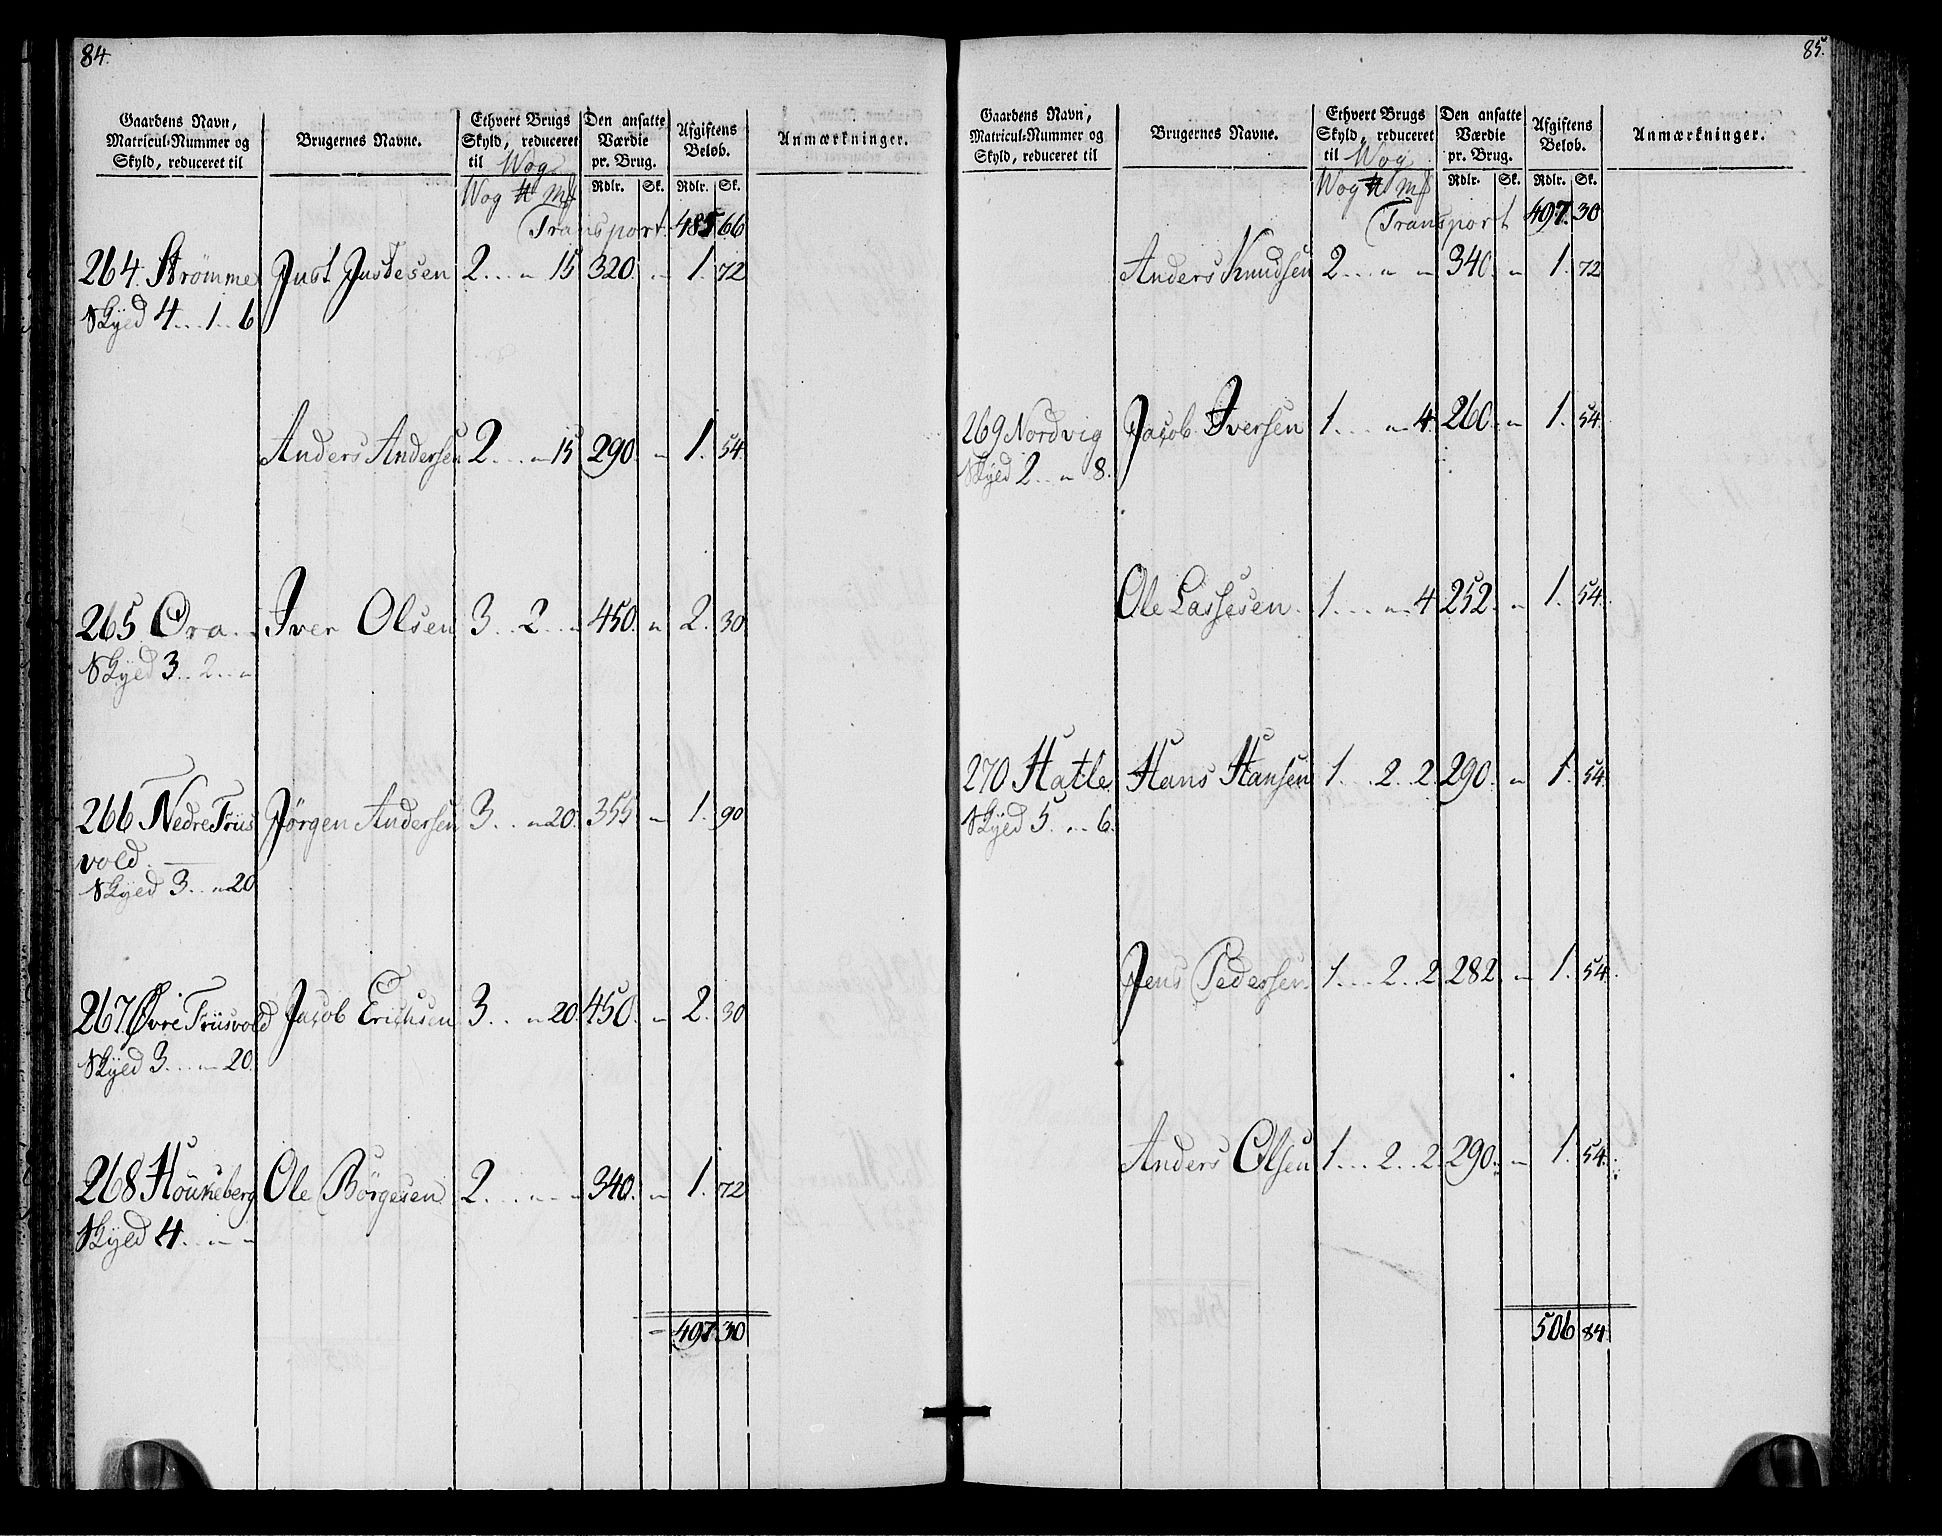 84.
Gaardens Navn, Matricul-Nummer og Skyld, reduceret til | Brugernes Navne. | Ethvert Brugs Skyld, reduceret til Wog | Den ansatte Værdie pr. Brug. | Afgiftens Belob. | Anmærkninger.
Wog ℔ Mk | Rdlr. | Sk. | Rdlr. | Sk.
Transport. 485. 66
264. Strømme Just Justesen 2 . . „ 15 320. „ 1. 72
Skyld 4 . . 1 . . 6
Anders Andersen 2 . . . „ 15 290. „ 1. 54
265 Ora. Iver Olsen 3 . . 2 . . „ 450. „ 2. 30
Skyld 3 . . 2 . . „
266 Nedre Friis Jörgen Andersen 3 . . „ 20. 355 „ 1. 90
vold.
Skyld 3 . . „ 20
267 Øvre Friisvold Jacob Erichsen 3 . . „ 20. 450. „ 2. 30
Skyld 3 . . . „ 20.
268 Houkeberg Ole Börgesen 2 . . „ „ 340. „ 1. 72
Skyld 4 . . „ „
497. 30
85.
Gaardens Navn, Matricul-Nummer og Skyld, reduceret til | Brugernes Navne. | Ethvert Brugs Skyld, reduceret til Wog | Den ansatte Værdie pr. Brug. | Afgiftens Belob. | Anmærkninger.
Wog ℔ Mk | Rdlr. | Sk. | Rdlr. | Sk.
Transport 497. 30
Anders Knudsen 2 . . „ „ 340. „ 1. 72
269 Nordvig Jacob Iversen 1 . . . „ 4 260. „ 1. 54
Skyld 2 . . „ 8.
Ole Lassesen. 1 . . . „ 4 252. „ 1. 54.
270 Hatle Hans Hansen 1 . . . 2 . . 2 290. „ 1. 54
Skyld 5 . . . 6.
Jens Pedersen 1 . . . 2 . . 2 282. „ 1. 54.
Anders Olsen 1 . . . 2 . . 2 290. „ 1. 54.
506. 84.